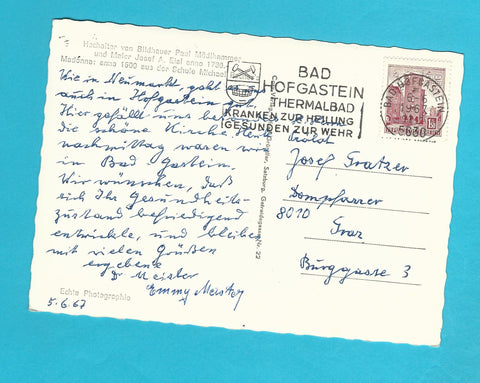 Hochaltar von Bildhauer Paul Mödlhammer
und Maler Josef A. Eisl anno 1738.
Madonna: anno 1500 aus der Schule Michael
Wie in Neumarkt, geht es uns
auch in Hofgastein gut.
Hier gefällt uns besonders
die schöne Kirche. Heute
nachmittag waren wir
in Bad Gastein.
Wir wünschen, daß
sich Ihr Gesundheits-
zustand befriedigend
entwickle, und bleiben
mit vielen Grüßen
ergebene
Dr Meister
Emmy Meister
5.6.67
Echte Photographie
BAD
HOFGASTEIN
THERMALBAD
KRANKEN ZUR HEILUNG
GESUNDEN ZUR WEHR
BAD HOFGASTEIN
5630
Josef Gratzer
Dompfarrer
8010 Graz
Burggasse 3
Salzburg, Getreidegasse Nr. 22